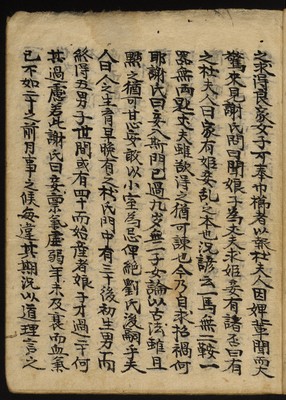 之求得良家女子才奉巾櫛者以報杜夫人因婢輩聞而大
驚來見謝氏問曰聞娘子為丈夫求姬妾有諸否曰有
之杜夫人曰家有姬妾乱之本也况諺云一馬無二鞍一
器無兩匙丈夫雖欲得之猶可諫也今乃自求招禍何
耶謝氏曰妾入斯門已過九歲無一子女論以古法雖且
黜之猶可甘心妾敢以小室為忌俾絶劉氏後嗣乎夫
人曰人之生育早晚有之杜氏門中有三十後初生男而
終得五男子世間或有四十而始產者娘子才過二十何
其過慮若此謝氏曰妾禀氣虛弱年未及衰而血氣
已不如二十之前月事之候每違其期况以道理言之